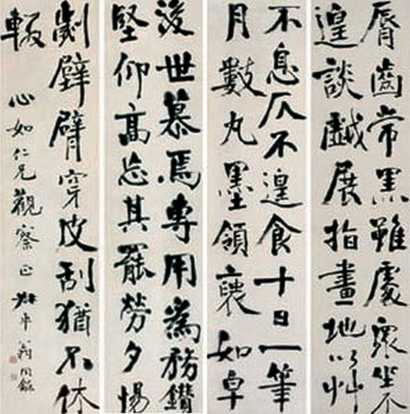 脣齒常黑雖處眾坐不
遑談戲展指畫地以艸
不息仄不遑食十日一筆
月數丸墨領褏如皁
後世慕焉專用為務鑽
堅仰高忘其罷勞夕惕
劌壁臂穿皮刮猶不休
輟
心如仁兄觀察正 叔平翁同龢